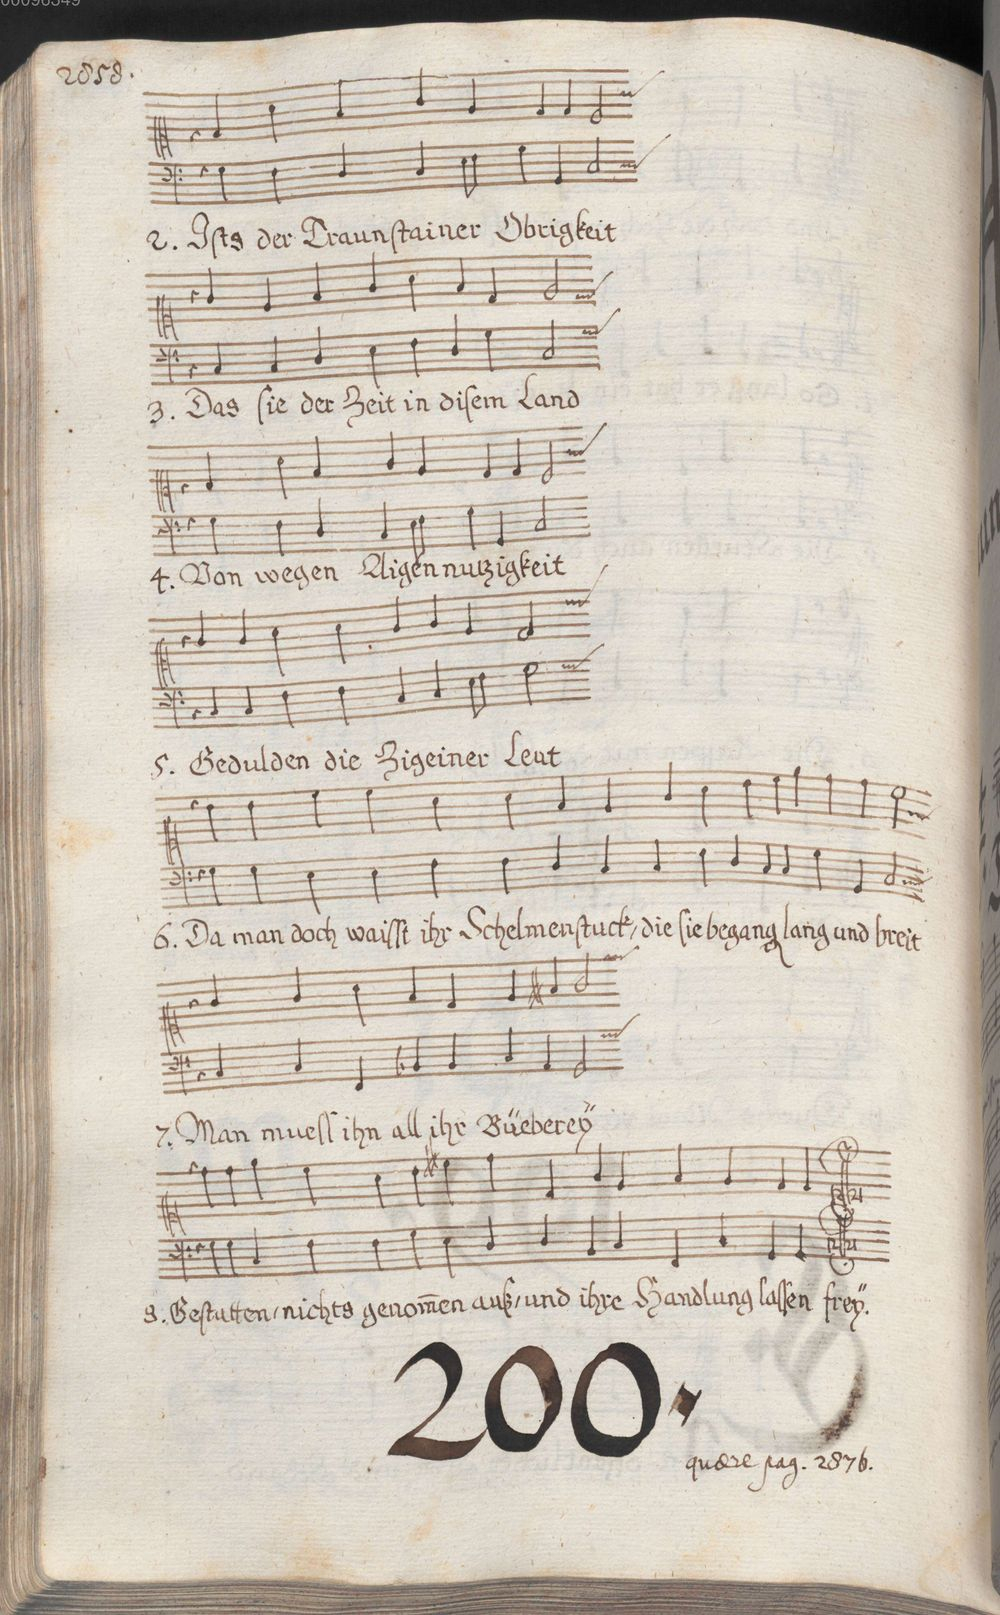 00096349
2858.
2. Ists der Traunstainer Obrigkeit
3. Das sie der Zeit in disem Land
4. Von wegen Aigennutzigkeit
5. Gedulden die Zigeiner Leut
6. Da man doch waisst ihr Schelmenstuck, die sie begang lang und breit
7. Man muess ihn all ihr Büebereÿ
8. Gestatten, nichts genom̄en auß, und ihre Handlung lassen freÿ.
200.
quære pag. 2876.